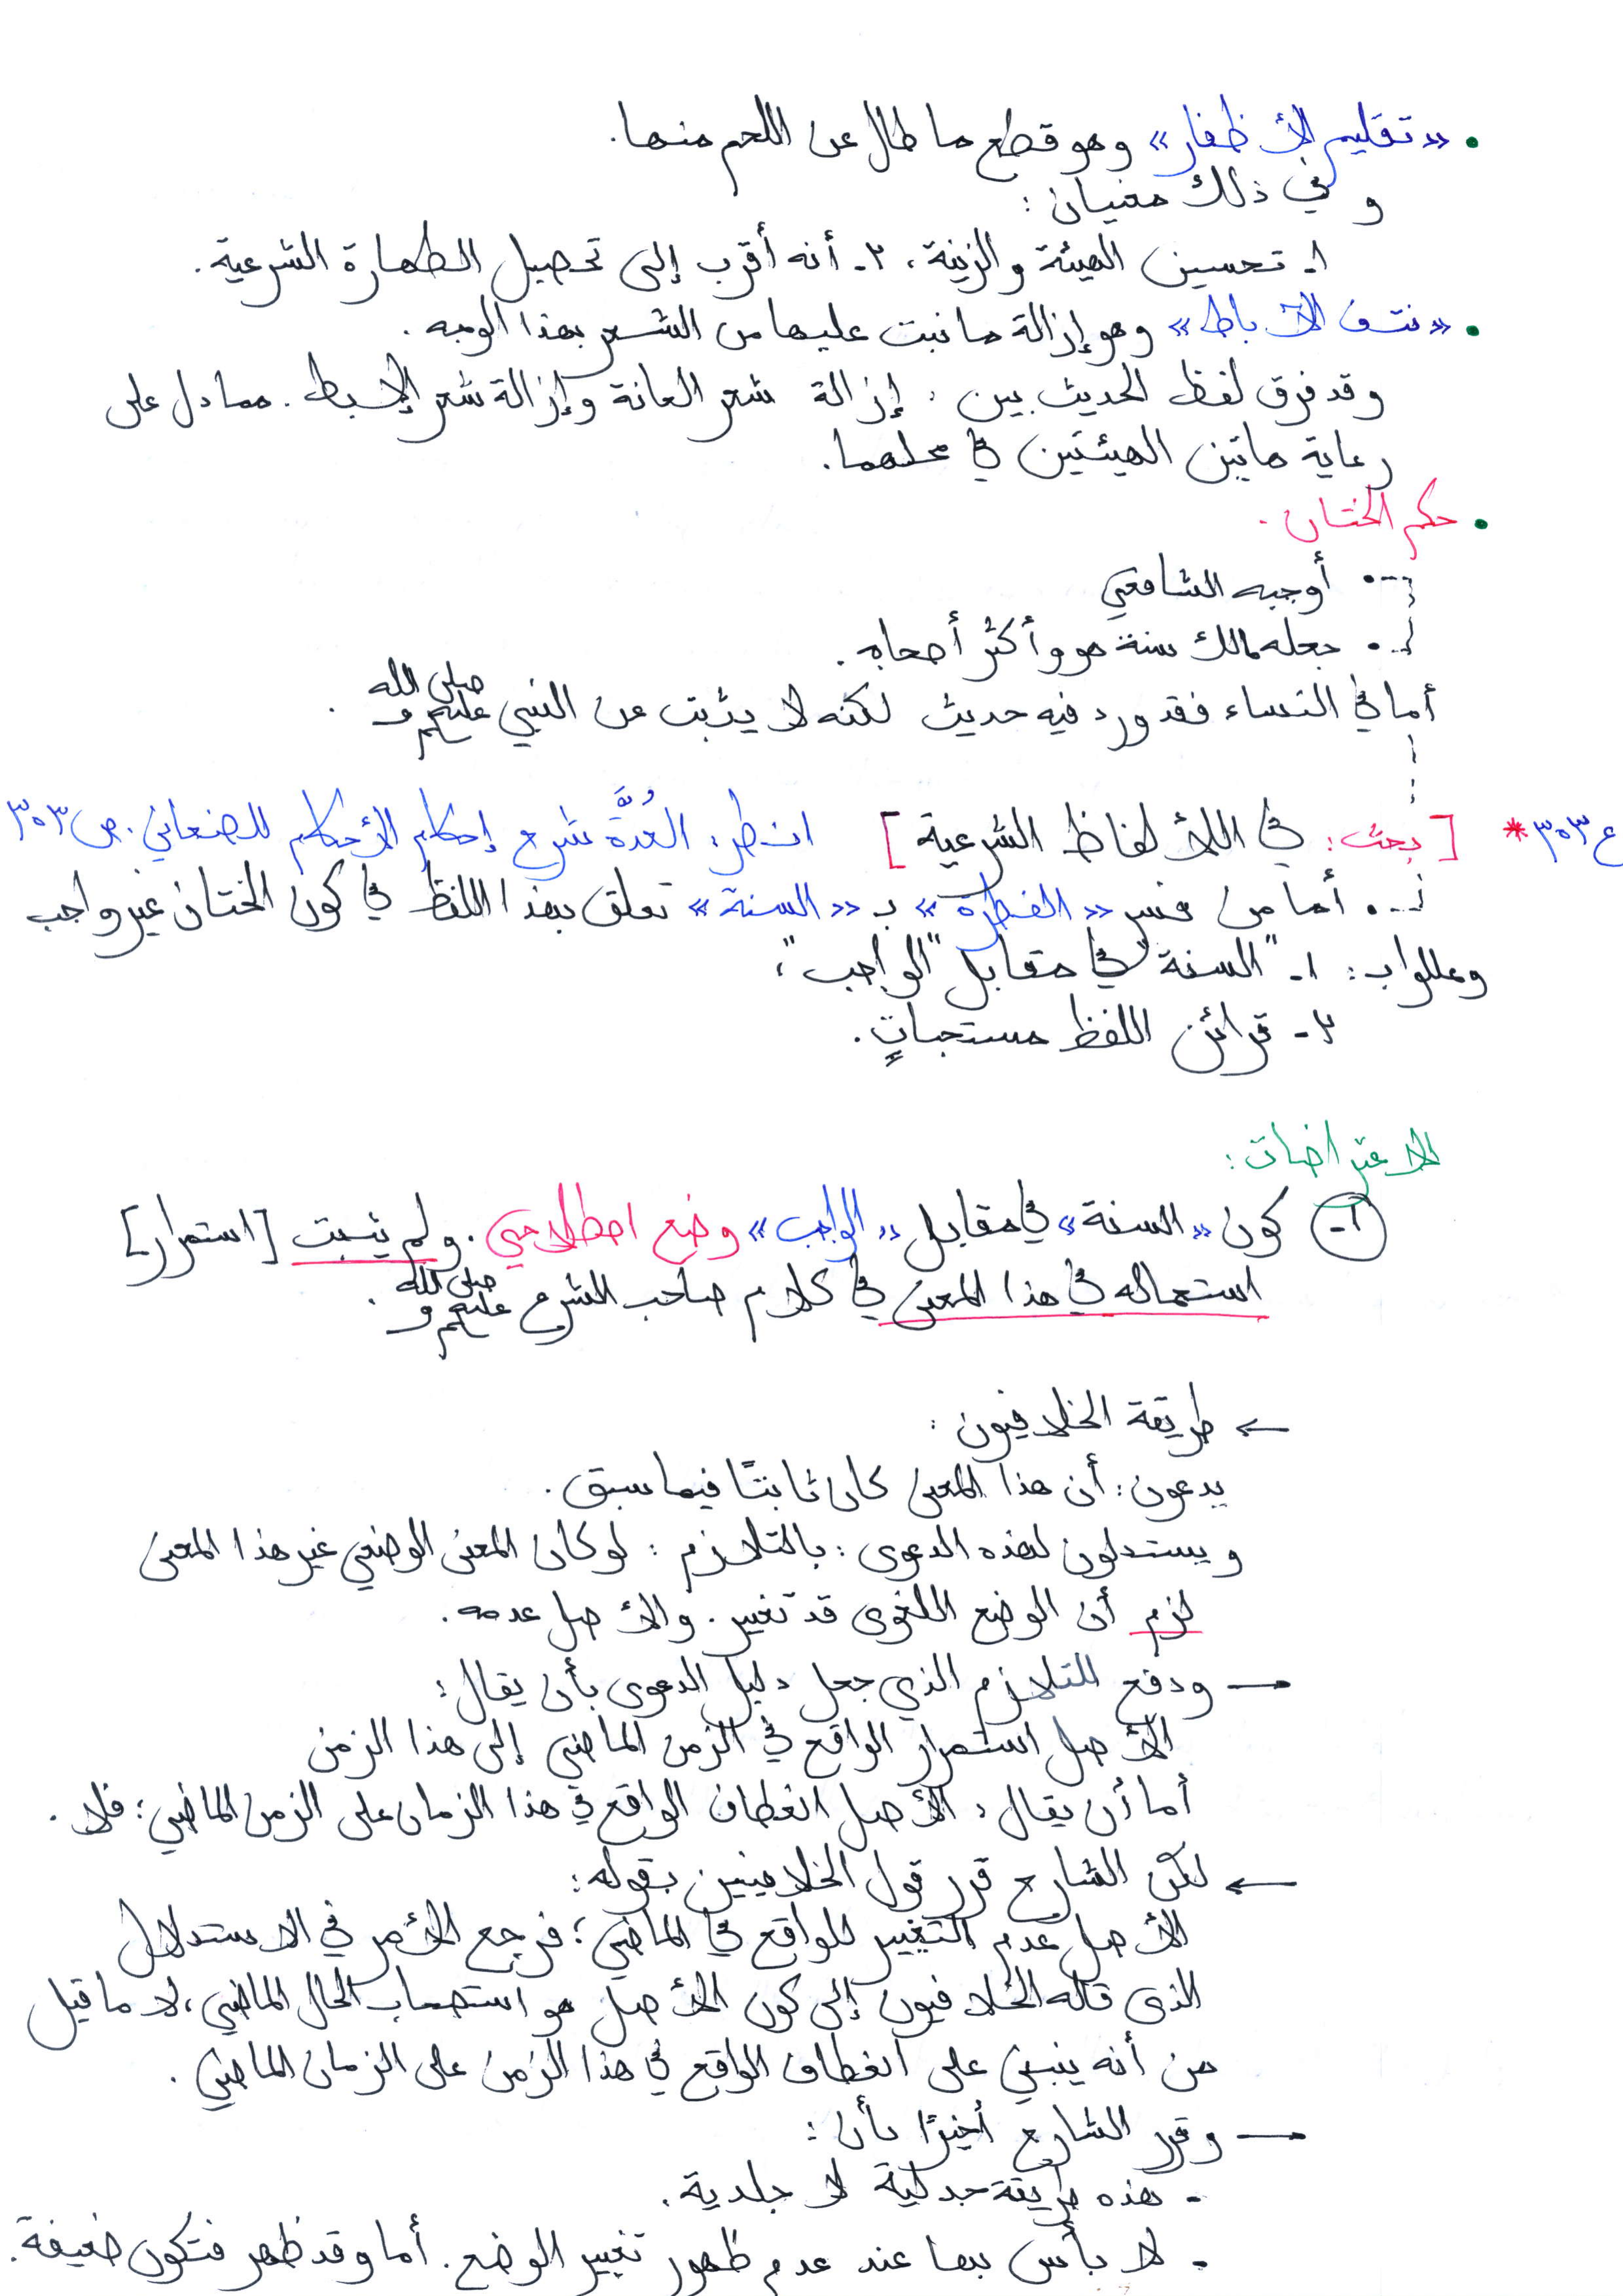 • «تقليم الأظفار» وهو قطع ما طال عن اللحم منها.
و في ذلك معنيان:
١- تحسين الهيئة والزينة، ٢- أنه أقرب إلى تحصيل الطهارة الشرعية.
• «نتف الآباط» وهو إزالة ما نبت عليها من الشعر بهذا الوجه.
وقد فرق لفظ الحديث بين: إزالة شعر العانة وإزالة شعر الإبط. مما دل على
رعاية هاتين الهيئتين في محلهما.
• حكم الختان.
• أوجبه الشافعي
• جعله مالك سنة هو وأكثر أصحابه.
أما في النساء فقد ورد فيه حديث لكنه لا يثبت عن النبي صلى الله عليه وسلم.
ع ٣٠٣ * [بحث: في اللألفاظ الشرعية] انظر: العُدَّة شرح إحكام الأحكام للصنعاني. ص ٣٠٣
• أما من فسر «الفطرة» بـ «السنة» تعلق بهذا اللفظ في كون الختان غير واجب
وعللوا بـ: ١- "السنة" في مقابل "الواجب"؛
٢- قرائن اللفظ مستحباتٍ.
الاعتراضات:
١- كون «السنة» في مقابل «الواجب» وضع اصطلاحي. ولم يثبت [استمرار]
استعماله في هذا المعنى في كلام صاحب الشرع صلى الله عليه وسلم.
← طريقة الخلافيون:
يدعون: أن هذا المعنى كان ثابتًا فيما سبق.
ويستدلون لهذه الدعوى: بالتلازم: لو كان المعنى الوضعي غير هذا المعنى
لزم أن الوضع اللغوى قد تغير. والأصل عدمه.
— ودفع التلازم الذي جعل دليل الدعوى بأن يقال:
الأصل استمرار الواقع في الزمن الماضي إلى هذا الزمن
أما أن يقال: الأصل انعطاف الواقع في هذا الزمان على الزمن الماضي؛ فلا.
← لكن الشارح قرر قول الخلافيين بقوله:
الأصل عدم التغيير للواقع في الماضي؛ فرجع الأمر في الاستدلال
الذى قاله الخلافيون إلى كون الأصل هو استصحاب الحال الماضي، لا ما قيل
من أنه ينبني على انعطاف الواقع في هذا الزمن على الزمان الماضي.
— وقرر الشارح أخيرًا بأن:
- هذه طريقة جدلية لا جلدية.
- لا بأس بها عند عدم ظهور تغيير الوضع. أما وقد ظهر فتكون ضعيفة.